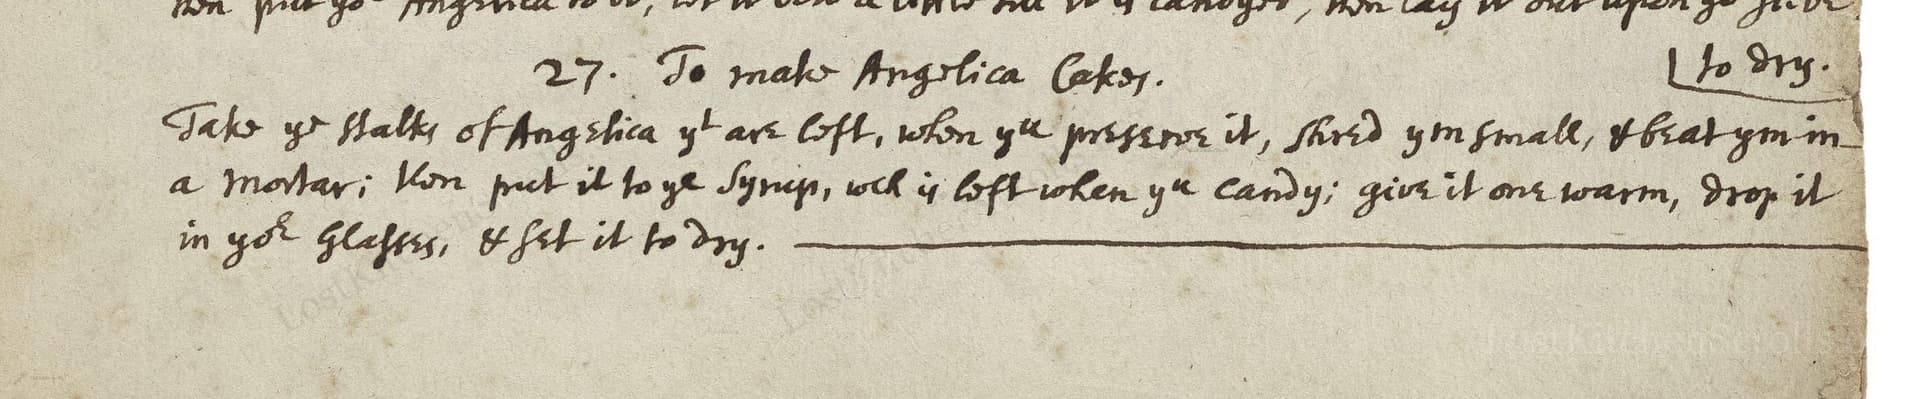 then put yor Angelica to it, let it boil a little till it is candyed, then lay it out upon ye
to dry.
27. To make Angelica Cakes.
Take ye stalks of Angelica yt are left, when yu preserve it, shred ym small, & beat ym in
a mortar; then put it to ye Syrup, wch is left when yu candy; give it one warm, drop it
in yor Glasses, & set it to dry.